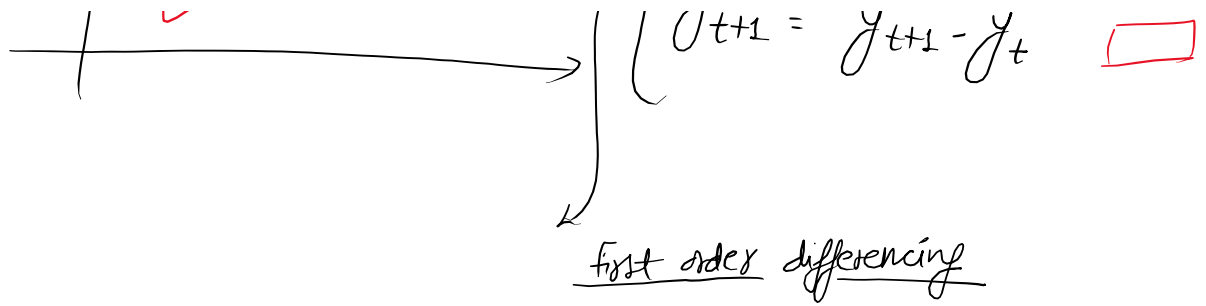 y_{t+1} = y_{t+1} - y_t
first order differencing